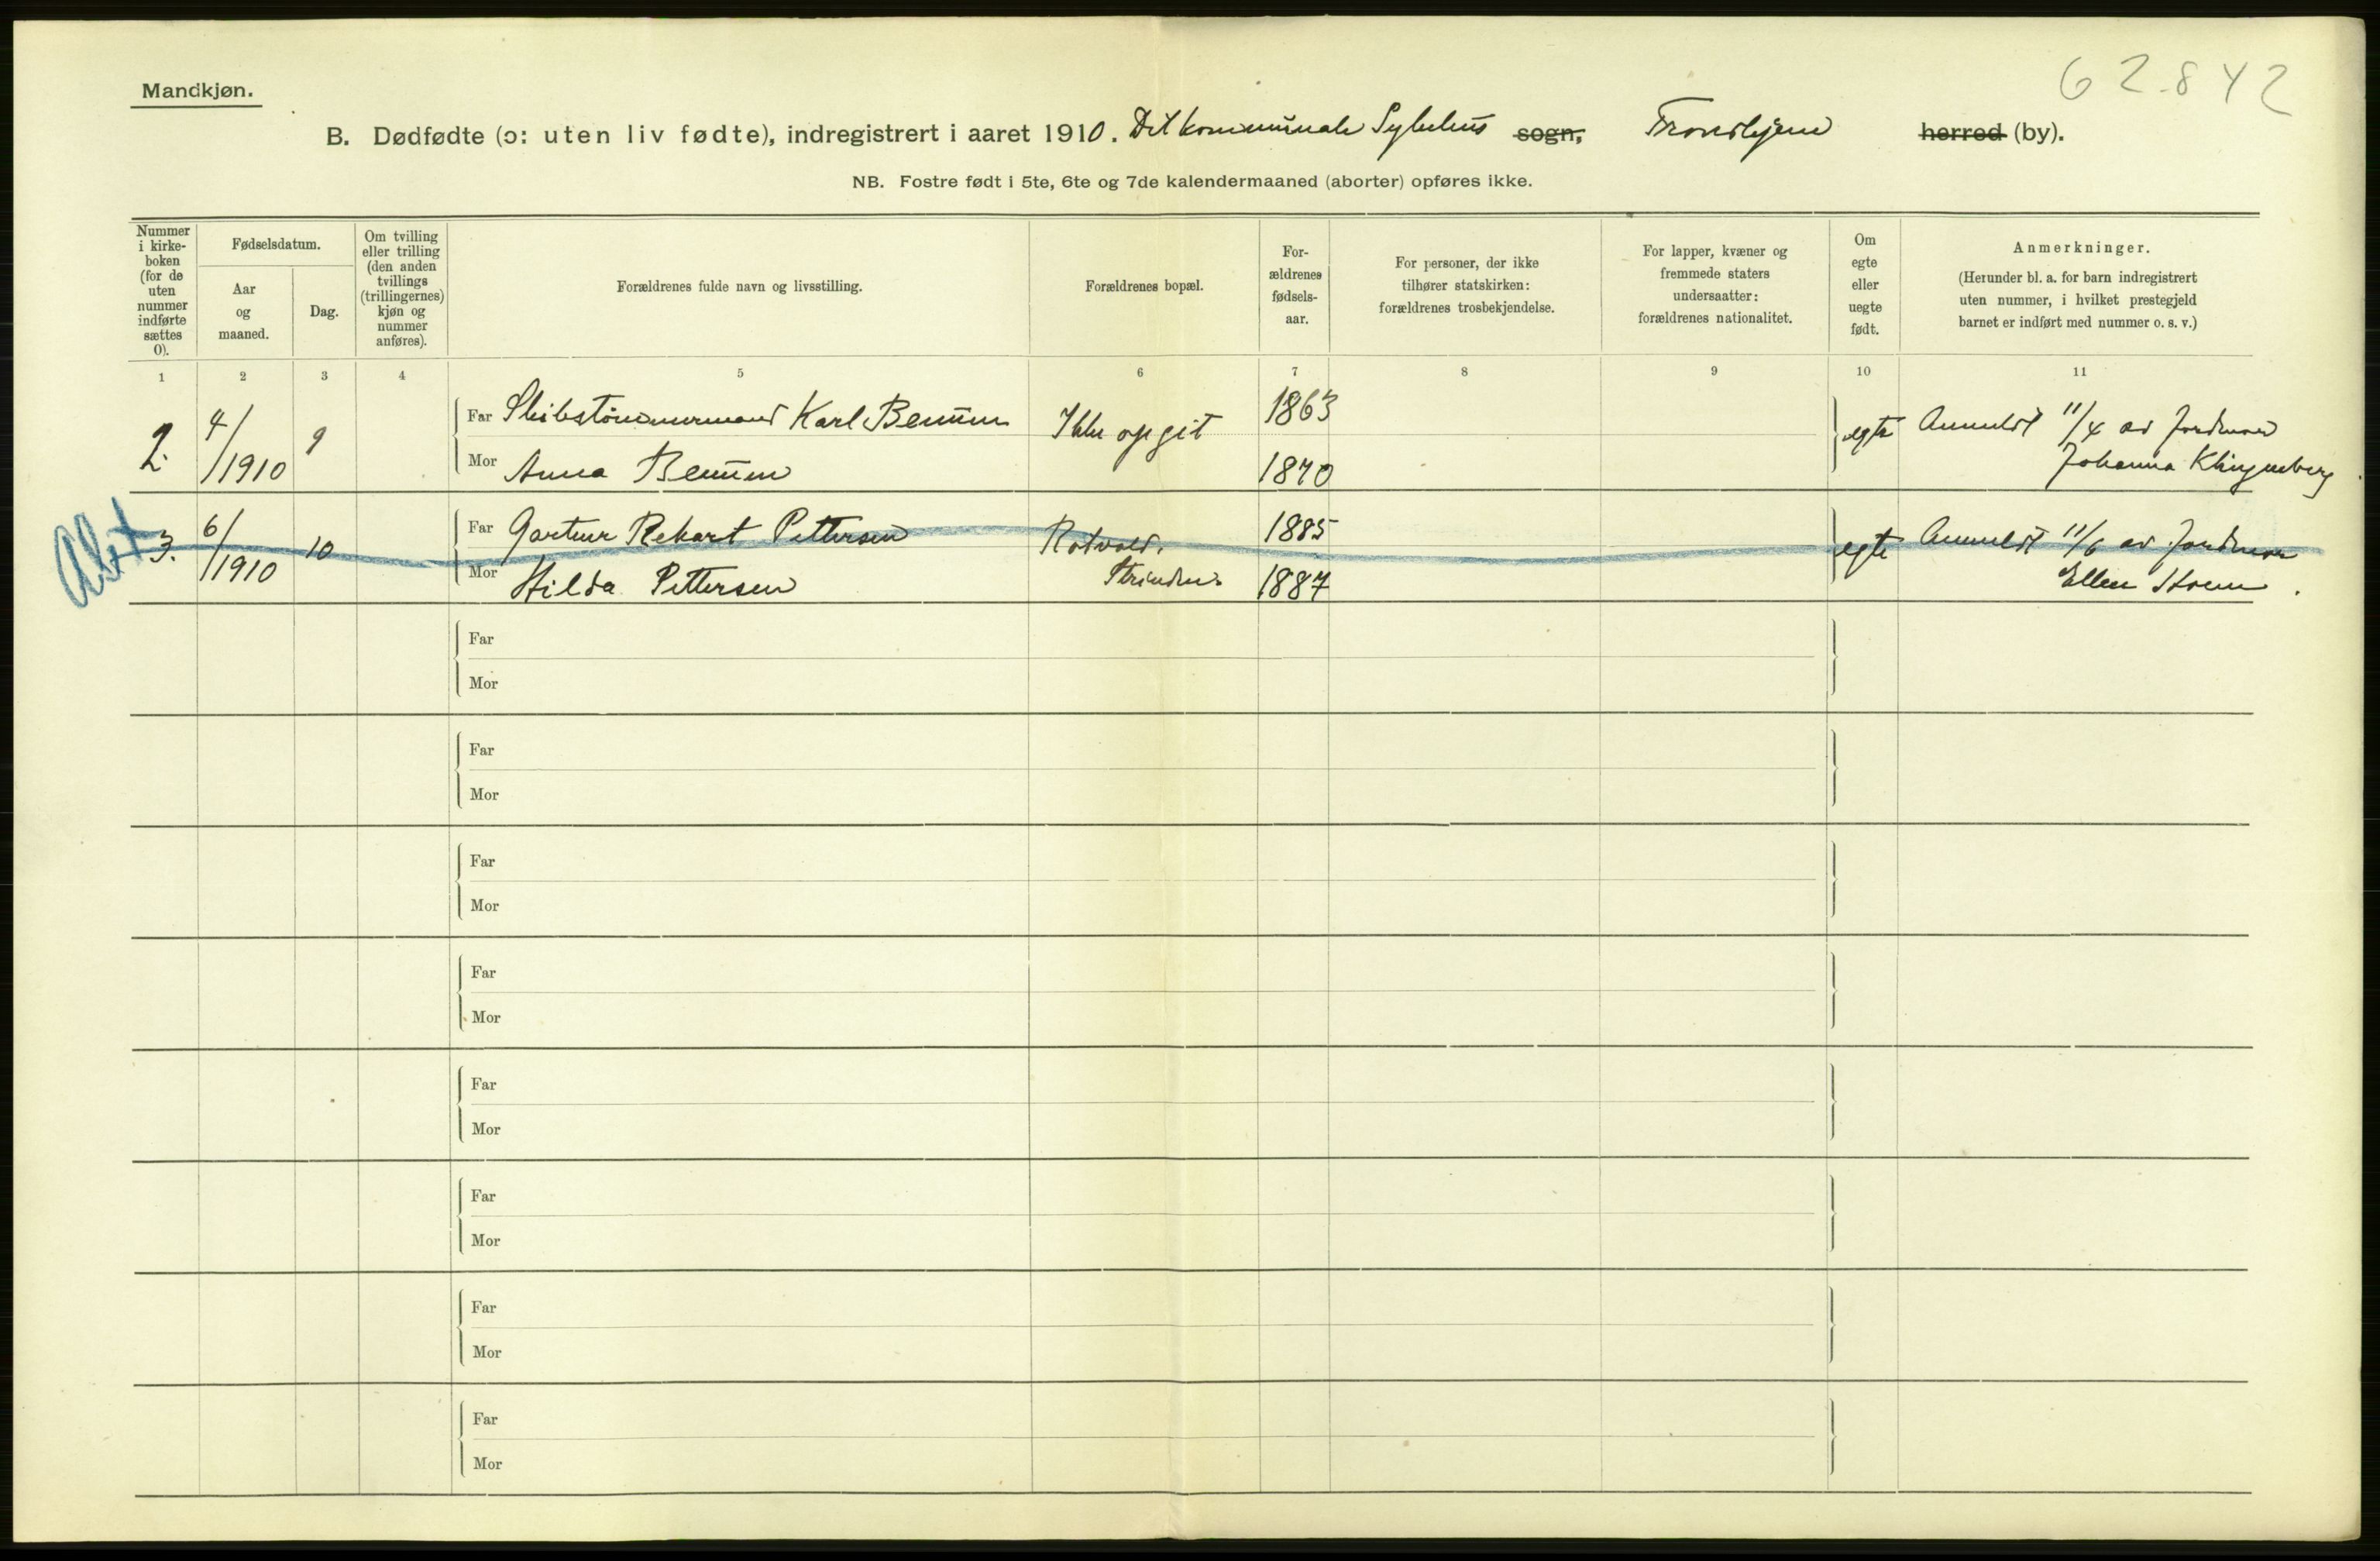 Mandkjøn.
62.842
B. Dødfødte (ɔ: uten liv fødte), indregistrert i aaret 1910. Det kommunale Sykehus sogn, Trondhjem herred (by).
NB. Fostre født i 5te, 6te og 7de kalendermaaned (aborter) opføres ikke.
Nummer
i kirke-
boken
(for de
uten
nummer
indførte
sættes
0).
Fødselsdatum.
Aar
og
maaned.
Dag.
Om tvilling
eller trilling
(den anden
tvillings
(trillingernes)
kjøn og
nummer
anføres).
Forældrenes fulde navn og livsstilling.
Forældrenes bopæl.
For-
ældrenes
fødsels-
aar.
For personer, der ikke
tilhører statskirken:
forældrenes trosbekjendelse.
For lapper, kvæner og
fremmede staters
undersaatter:
forældrenes nationalitet.
Om
egte
eller
uegte
født.
Anmerkninger.
(Herunder bl. a. for barn indregistrert
uten nummer, i hvilket prestegjeld
barnet er indført med nummer o. s. v.)
1 2 3 4 5 6 7 8 9 10 11
2. 4/1910 9 Far Skibstømmermand Karl Ikke opgit 1863 egte Anmeldt 11/4 av Jordmor
Mor Anna 1870 Johanna Klingenberg
3. 6/1910 10 Far Gartner Pettersen Rotvold, 1885 egte Anmeldt 11/6 av Jordmor
Mor Hilda Pettersen Strinden. 1887 Ellen
Far
Mor
Far
Mor
Far
Mor
Far
Mor
Far
Mor
Far
Mor
Far
Mor
Far
Mor